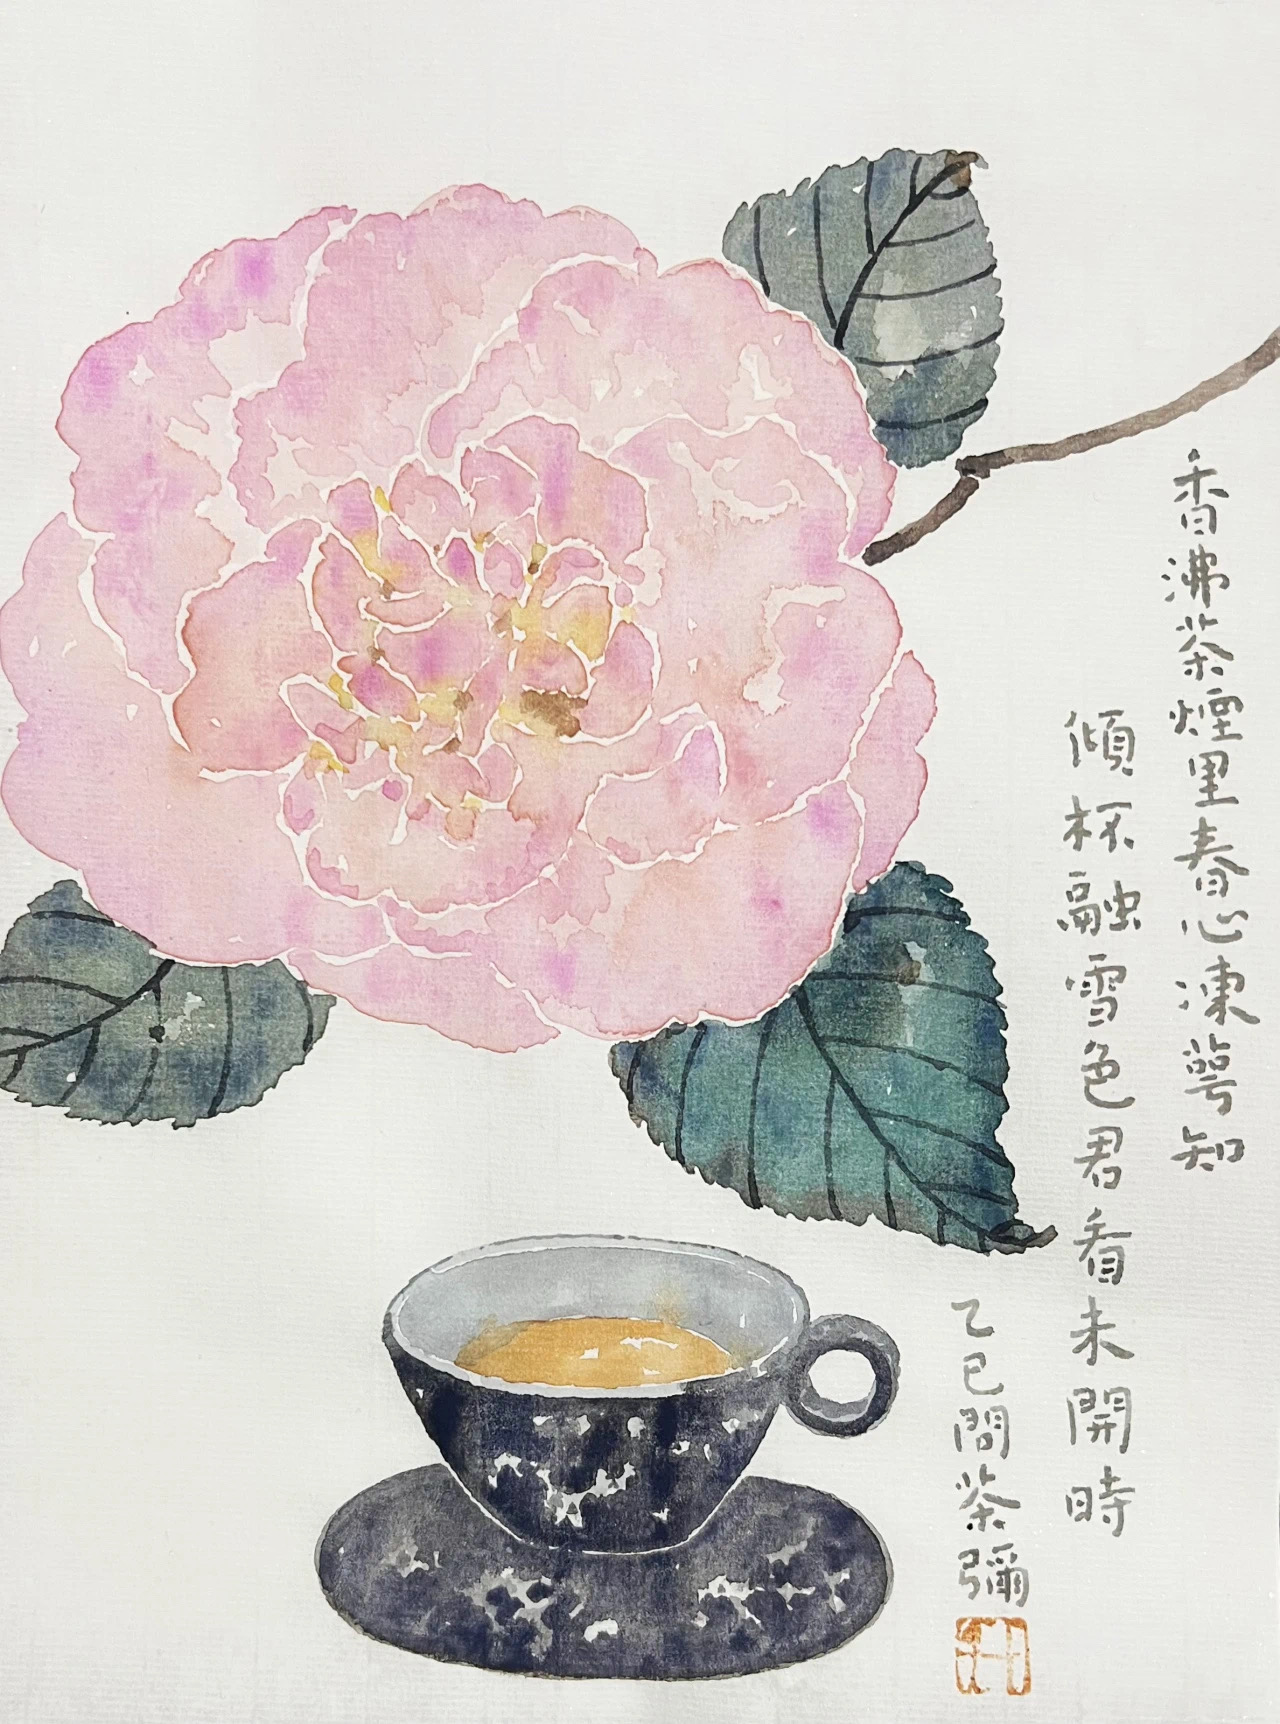 香沸茶煙里春心凍萼知
傾杯融雪色君看未開時
乙巳問茶彌